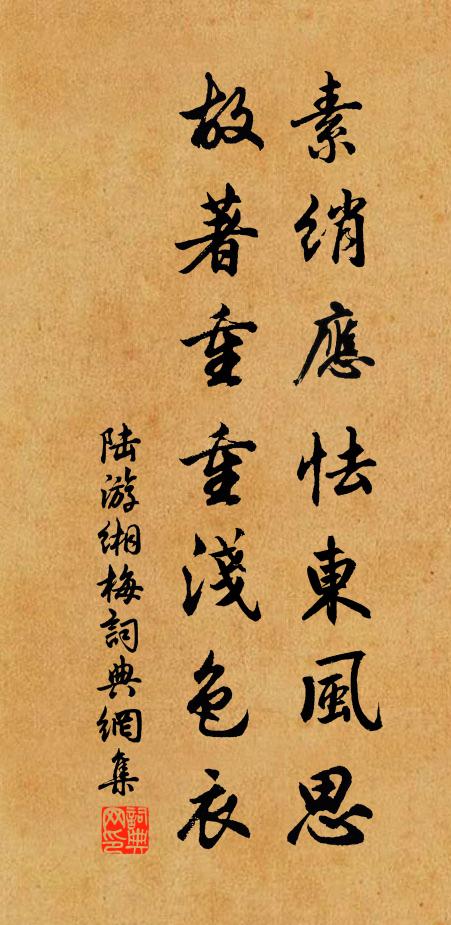 素綃應怯東風思
故著重重淺色衣
陸游緗梅詞典網集
詞典网印